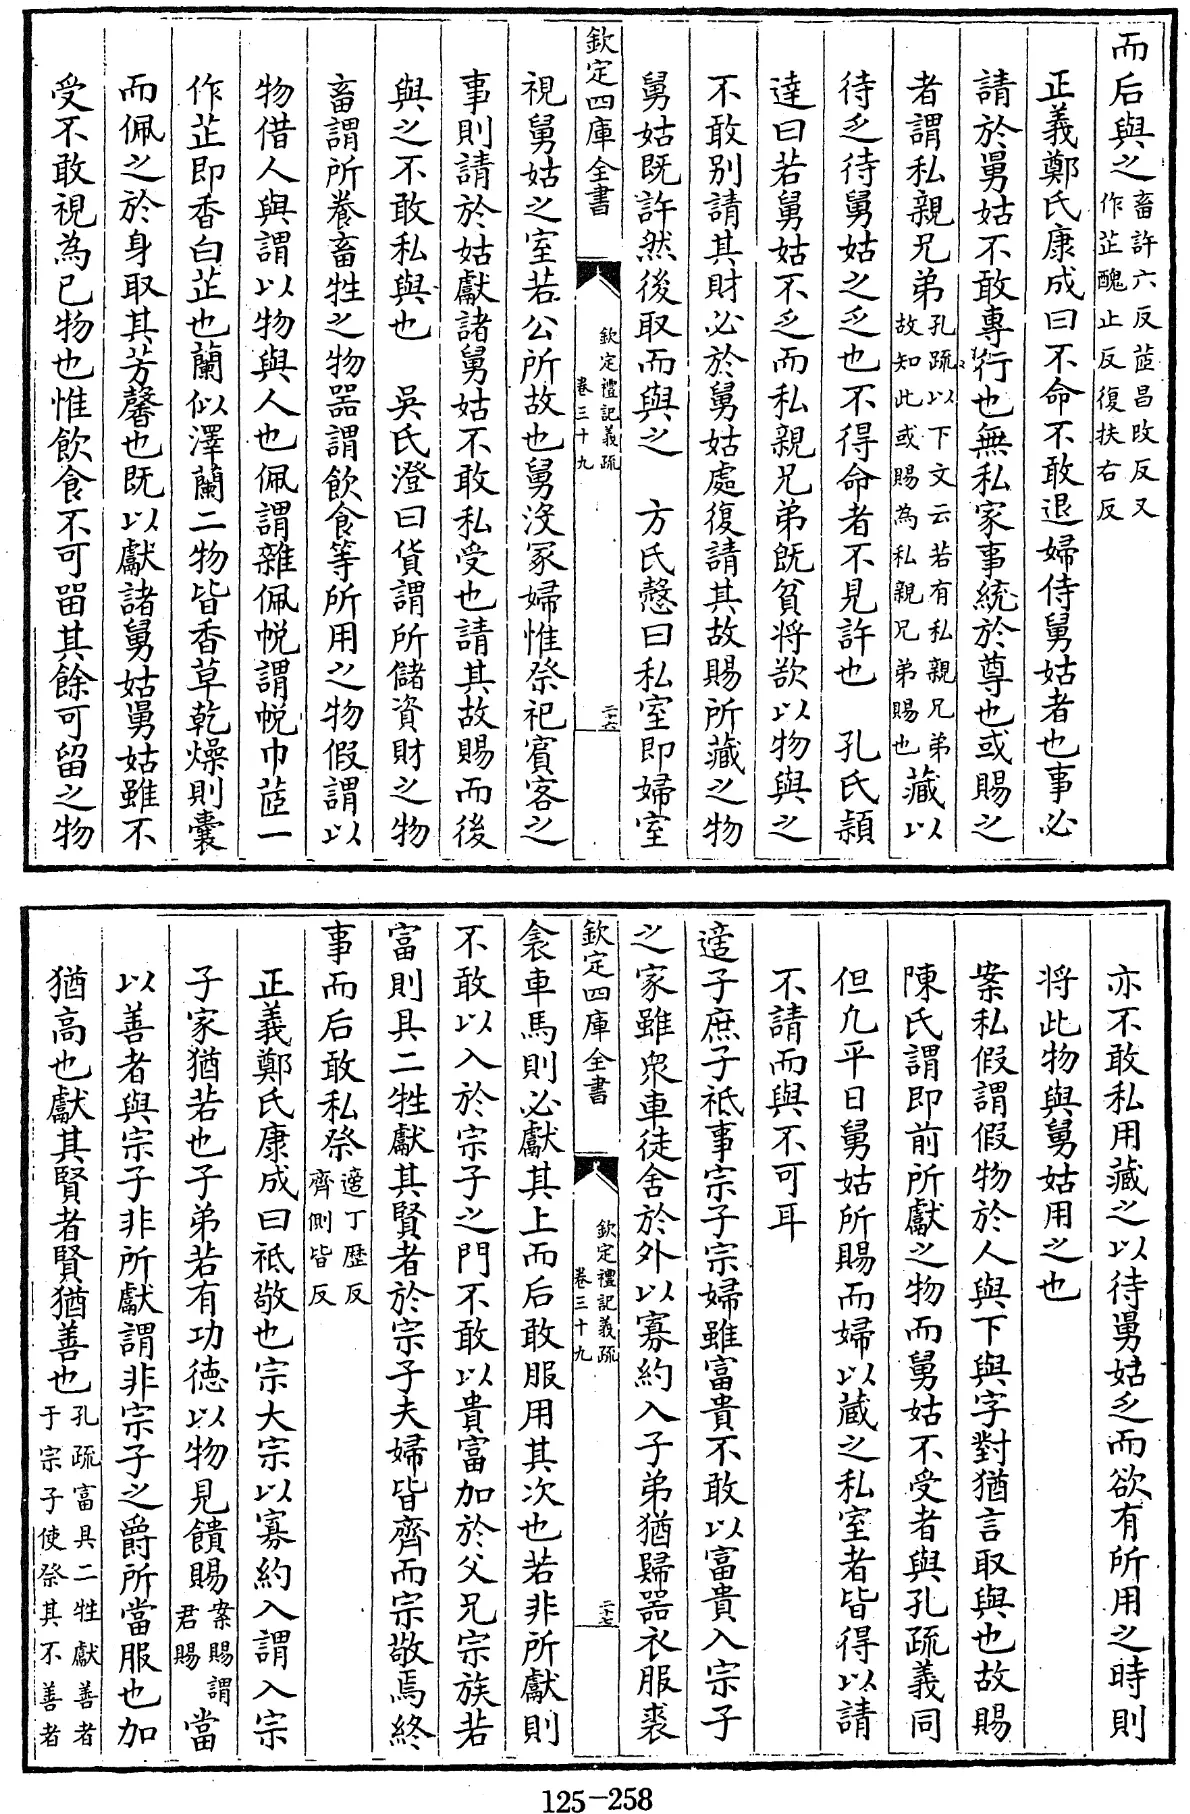 而后與之畜許六反茝昌改反又
作芷醜止反復扶右反
正義鄭氏康成曰不命不敢退婦侍舅姑者也事必
請於舅姑不敢專行也無私家事統於尊也或賜之
者謂私親兄弟孔疏以下文云若有私親兄弟
故知此或賜為私親兄弟賜也藏以
待乏待舅姑之乏也不得命者不見許也　孔氏穎
達曰若舅姑不乏而私親兄弟既貧将欲以物與之
不敢别請其財必於舅姑處復請其故賜所藏之物
舅姑既許然後取而與之　方氏慤曰私室即婦室
欽定四庫全書
欽定禮記義疏
卷三十九
二十六
視舅姑之室若公所故也舅沒冢婦惟祭祀賓客之
事則請於姑獻諸舅姑不敢私受也請其故賜而後
與之不敢私與也　吳氏澄曰貨謂所儲資財之物
畜謂所養畜牲之物器謂飲食等所用之物假謂以
物借人與謂以物與人也佩謂雜佩帨謂帨巾茝一
作芷即香白芷也蘭似澤蘭二物皆香草乾燥則囊
而佩之於身取其芳馨也既以獻諸舅姑舅姑雖不
受不敢視為已物也惟飲食不可畱其餘可留之物
亦不敢私用藏之以待舅姑乏而欲有所用之時則
将此物與舅姑用之也
案私假謂假物於人與下與字對猶言取與也故賜
陳氏謂即前所獻之物而舅姑不受者與孔疏義同
但凢平日舅姑所賜而婦以蔵之私室者皆得以請
不請而與不可耳
適子庶子祗事宗子宗婦雖富貴不敢以富貴入宗子
之家雖衆車徒舍於外以寡約入子弟猶歸器衣服裘
欽定四庫全書
欽定禮記義疏
卷三十九
二十七
衾車馬則必獻其上而后敢服用其次也若非所獻則
不敢以入於宗子之門不敢以貴富加於父兄宗族若
富則具二牲獻其賢者於宗子夫婦皆齊而宗敬焉終
事而后敢私祭適丁歴反
齊側皆反
正義鄭氏康成曰祗敬也宗大宗以寡約入謂入宗
子家猶若也子弟若有功德以物見饋賜案賜謂
君賜當
以善者與宗子非所獻謂非宗子之爵所當服也加
猶高也獻其賢者賢猶善也孔疏富具二牲獻善者
于宗子使祭其不善者
125-258